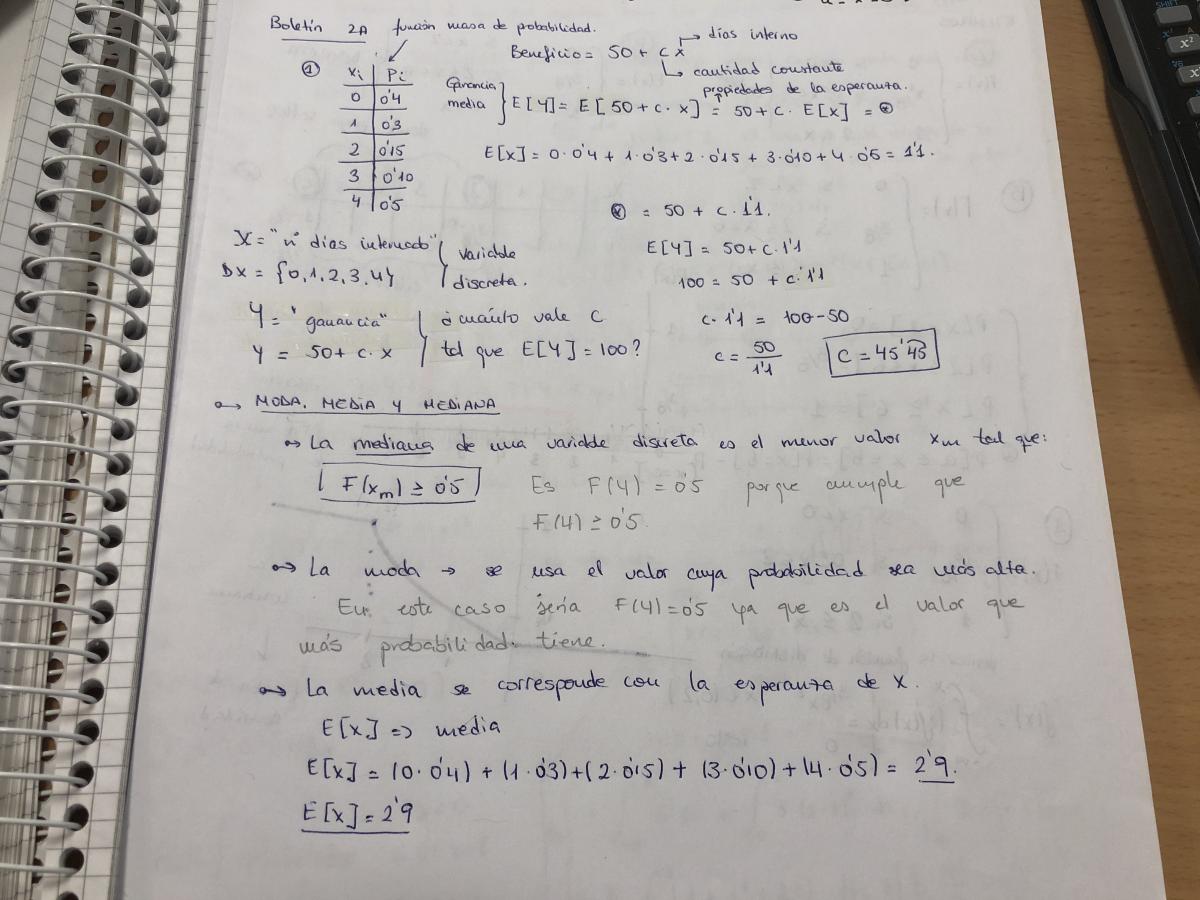 Boletín 2A función masa de probabilidad.
Beneficio = 50 + c x → días interno
↳ cantidad constante
① xi | Pi
0 | 0'4
1 | 0'3
2 | 0'15
3 | 0'10
4 | 0'5
propiedades de la esperanza.
Ganancia media } E[Y] = E[50 + c · x] = 50 + c · E[x] = ⊛
E[x] = 0 · 0'4 + 1 · 0'3 + 2 · 0'15 + 3 · 0'10 + 4 · 0'5 = 1'1.
⊛ = 50 + c · 1'1.
E[Y] = 50 + c · 1'1
100 = 50 + c · 1'1
c · 1'1 = 100 - 50
c = 50/1'1 C = 45'45
X = "nº días internado" } variable
Dx = {0, 1, 2, 3, 4} } discreta.
Y = "ganancia" } ¿cuánto vale C
Y = 50 + c · x } tal que E[Y] = 100?
→ MODA, MEDIA Y MEDIANA
→ La mediana de una variable discreta es el menor valor xm tal que:
F(xm) ≥ 0'5 Es F(4) = 0'5 porque cumple que
F(4) ≥ 0'5.
→ La moda → se usa el valor cuya probabilidad sea más alta.
En este caso sería F(4) = 0'5 ya que es el valor que
más probabilidad tiene.
→ La media se corresponde con la esperanza de X.
E[x] => media
E[x] = (0 · 0'4) + (1 · 0'3) + (2 · 0'15) + (3 · 0'10) + (4 · 0'5) = 2'9.
E[x] = 2'9